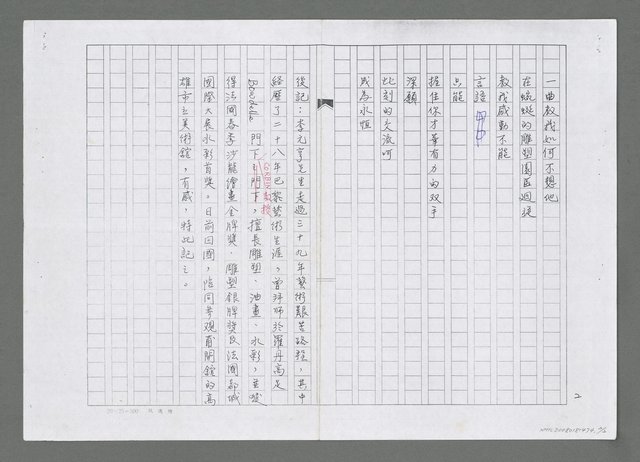 一曲教我如何不想他
在蜿蜒的雕塑園區迴旋
教我感動不能
言語
只能
握住你才華有力的双手
深願
此刻的交流呵
成為永恒
後記：李元亨先生走過三十九年藝術艱苦路程，其中
經歷了二十八年巴黎藝術生涯，曾拜師於羅丹高足
門下，擅長雕塑、油畫、水彩，並從
得法國春季沙龍繪畫金牌獎、雕塑銀牌獎及法國都城
國際大展水彩首獎，日前回國，陪同參觀甫開館的高
雄市立美術館，有感，特此記之。
教授
20×25=500
2